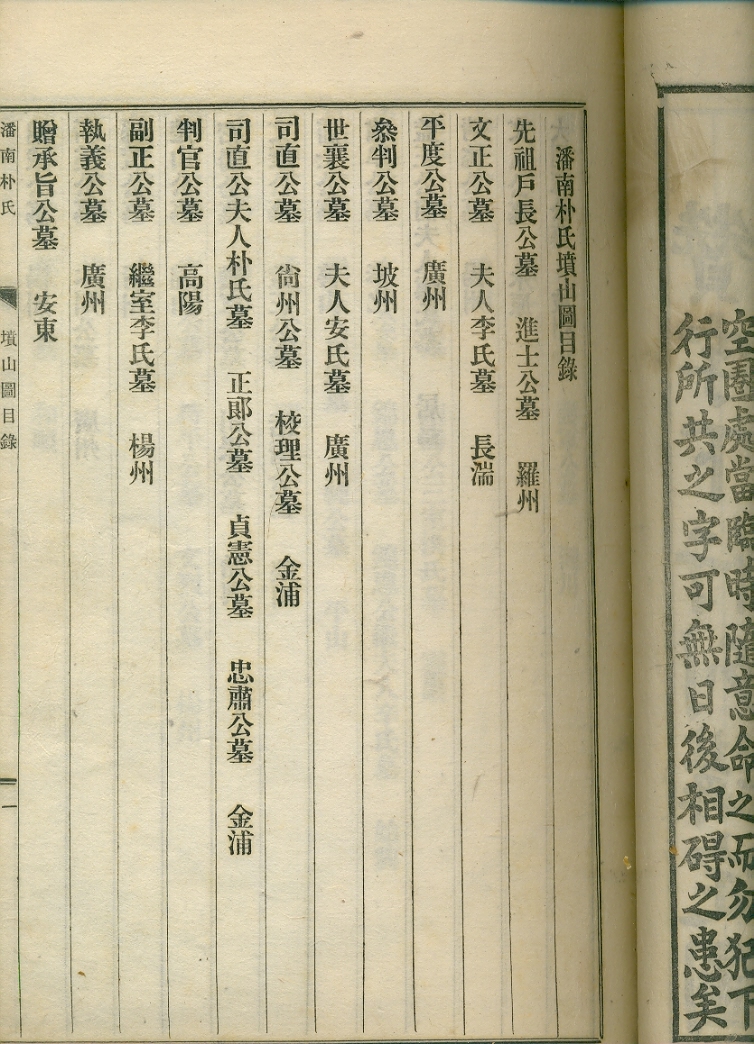 空圈處當臨時隨意命之而勿犯下
行所共之字可無日後相碍之患矣
潘南朴氏墳山圖目錄
先祖戶長公墓 進士公墓 羅州
文正公墓 夫人李氏墓 長湍
平度公墓 廣州
叅判公墓 坡州
世襄公墓 夫人安氏墓 廣州
司直公墓 尙州公墓 校理公墓 金浦
司直公夫人朴氏墓 正郞公墓 貞憲公墓 忠肅公墓 金浦
判官公墓 高陽
副正公墓 繼室李氏墓 楊州
執義公墓 廣州
贈承旨公墓 安東
潘南朴氏 墳山圖目錄 一